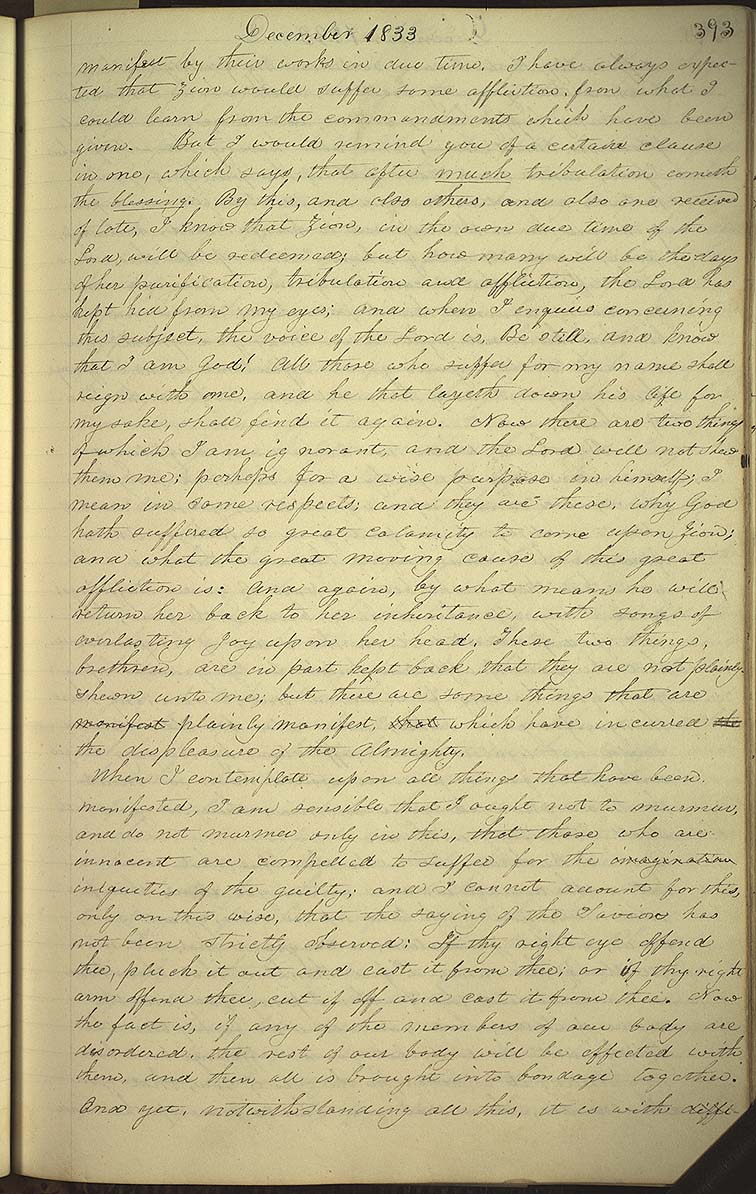 December 1833 393
manifest by their works in due time. I have always expec-
ted that Zion would suffer some affliction, from what I
could learn from the commandments which have been
given. But I would remind you of a certain clause
in one, which says, that after much tribulation cometh
the blessing. By this, and also others, and also one received
of late, I know that Zion, in the own due time of the
Lord, will be redeemed; but how many will be the days
of her purification, tribulation and affliction, the Lord has
kept hid from my eyes; and when I enquire concerning
this subject, the voice of the Lord is, Be still, and know
that I am God! All those who suffer for my name shall
reign with me, and he that layeth down his life for
my sake, shall find it again. Now there are two things
of which I am ignorant, and the Lord will not shew
them me; perhaps for a wise purpose in himself; I
mean in some respects; and they are these, why God
hath suffered so great calamity to come upon Zion;
and what the great moving cause of this great
affliction is: and again, by what means he will
return her back to her inheritance, with songs of
everlasting Joy upon her head. These two things,
brethren, are in part kept back that they are not plainly
shewn unto me; but there are some things that are
manifest plainly manifest, that which have incurred the
the displeasure of the Almighty.
When I contemplate upon all things that have been
manifested, I am sensible that I ought not to murmur,
and do not murmer only in this, that those who are
innocent are compelled to suffer for the imagination
iniqueties of the guilty; and I cannot account for this,
only on this wise, that the saying of the Savior has
not been strictly observed: If thy right eye offend
thee, pluck it out and cast it from thee; or if thy right
arm offend thee, cut if off and cast it from thee. Now
the fact is, if any of the members of our body are
disordered, the rest of our body will be effected with
them, and then all is brought into bondage together.
And yet, notwithstanding all this, it is with diffi-